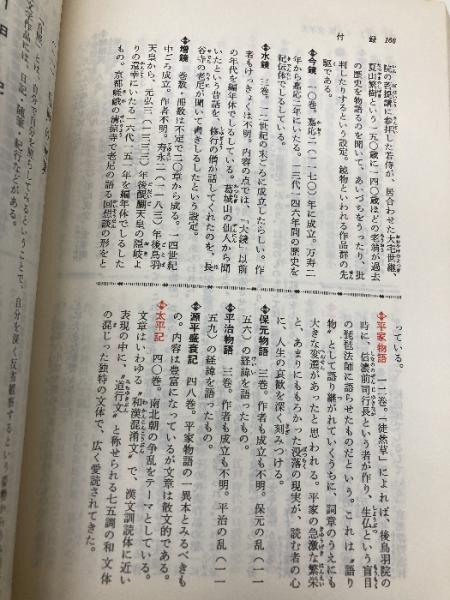 付録
168
院の菩提講に参拝した若侍が、居合わせた大宅世継、
夏山繁樹という一五〇歳に一四〇歳ほどの老翁が過去
の歴史を物語るのを聞いて、あいづちをうったり、批
判したりするという設定。鏡物といわれる作品群の先
駆である。
今鏡 一〇巻。嘉応二(一一七〇)年に成立。万寿二
年から嘉応二年にいたる、一三代一四六年間の歴史を
紀伝体でしるしている。
水鏡 三巻。一二世紀の末ごろに成立したらしい。作
者もけっきょくは不明。内容の点では、『大鏡』以前
の年代を編年体でしるしている。葛城山の仙人から聞
いたという昔話を、修行の僧が話してくれたのを、長
谷寺の老尼が聞いて書きしるしたという設定。
増鏡 巻数、冊数は不定で二〇章から成る。一四世紀
中ごろ成立。作者不明。寿永二(一一八三)年後鳥羽
天皇から、元弘三(一三三三)年後醍醐天皇の隠岐よ
りの還幸にいたる一六代一五一年を編年体でしるした
もの。京都嵯峨の清涼寺で老尼の語る回想談の形をと
っている。
平家物語 一二巻。『徒然草』によれば、後鳥羽院の
時に、信濃前司行長という者が作り、生仏という盲目
の琵琶法師に語らせたものだという。これは〝語り
物〟として語り継がれていくうちに、詞章のうえにも
大きな変遷があったと思われる。平家の急激な繁栄
と、あまりにももろかった没落の現実が、読む者の心
に、人生の哀歓を深く刻みつける。
保元物語 三巻。作者も成立も不明。保元の乱(一一
五六)の経緯を語ったもの。
平治物語 三巻。作者も成立も不明。平治の乱(一一
五九)の経緯を語ったもの。
源平盛衰記 四八巻。平家物語の一異本とみるべきも
の。内容は豊富になっているが文章は散文的である。
太平記 四〇巻。南北朝の争乱をテーマとしている。
文章はいわゆる〝和漢混淆文〟で、漢文訓読体に近い
表現の中に、〝道行文〟と称せられる七五調の和文体
の混じった独特の文体で、広く愛読されてきた。